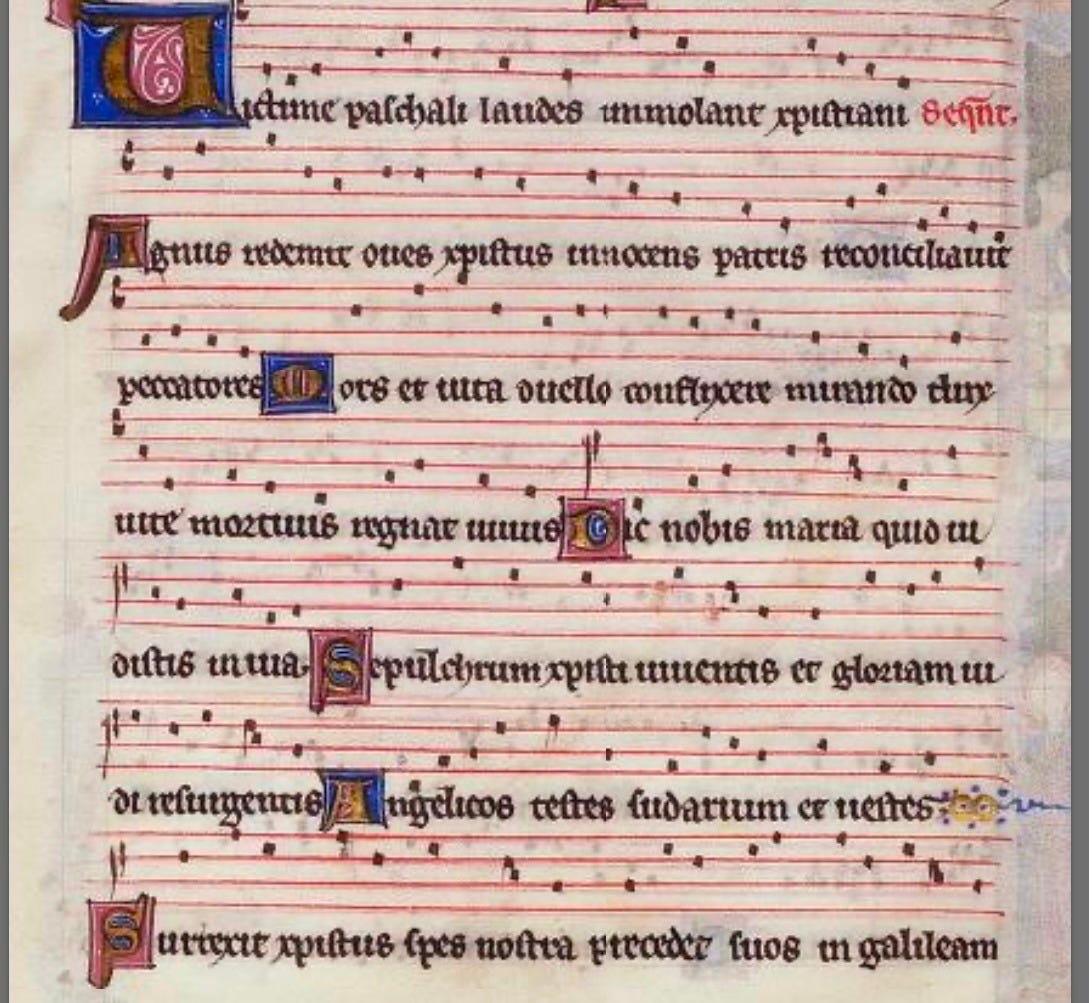 Uictime paschali laudes immolant xpistiani Seqn̄t.
Agnus redemit oues xpistus innocens patris reconciliauit
peccatores Mors et uita duello conflixere mirando dux
uite mortuus regnat uiuus Dic nobis maria quid ui
distis in uia. Sepulchrum xpisti uiuentis et gloriam ui
di resurgentis Angelicos testes sudarium et uestes.
Surrexit xpistus spes nostra precedet suos in galileam